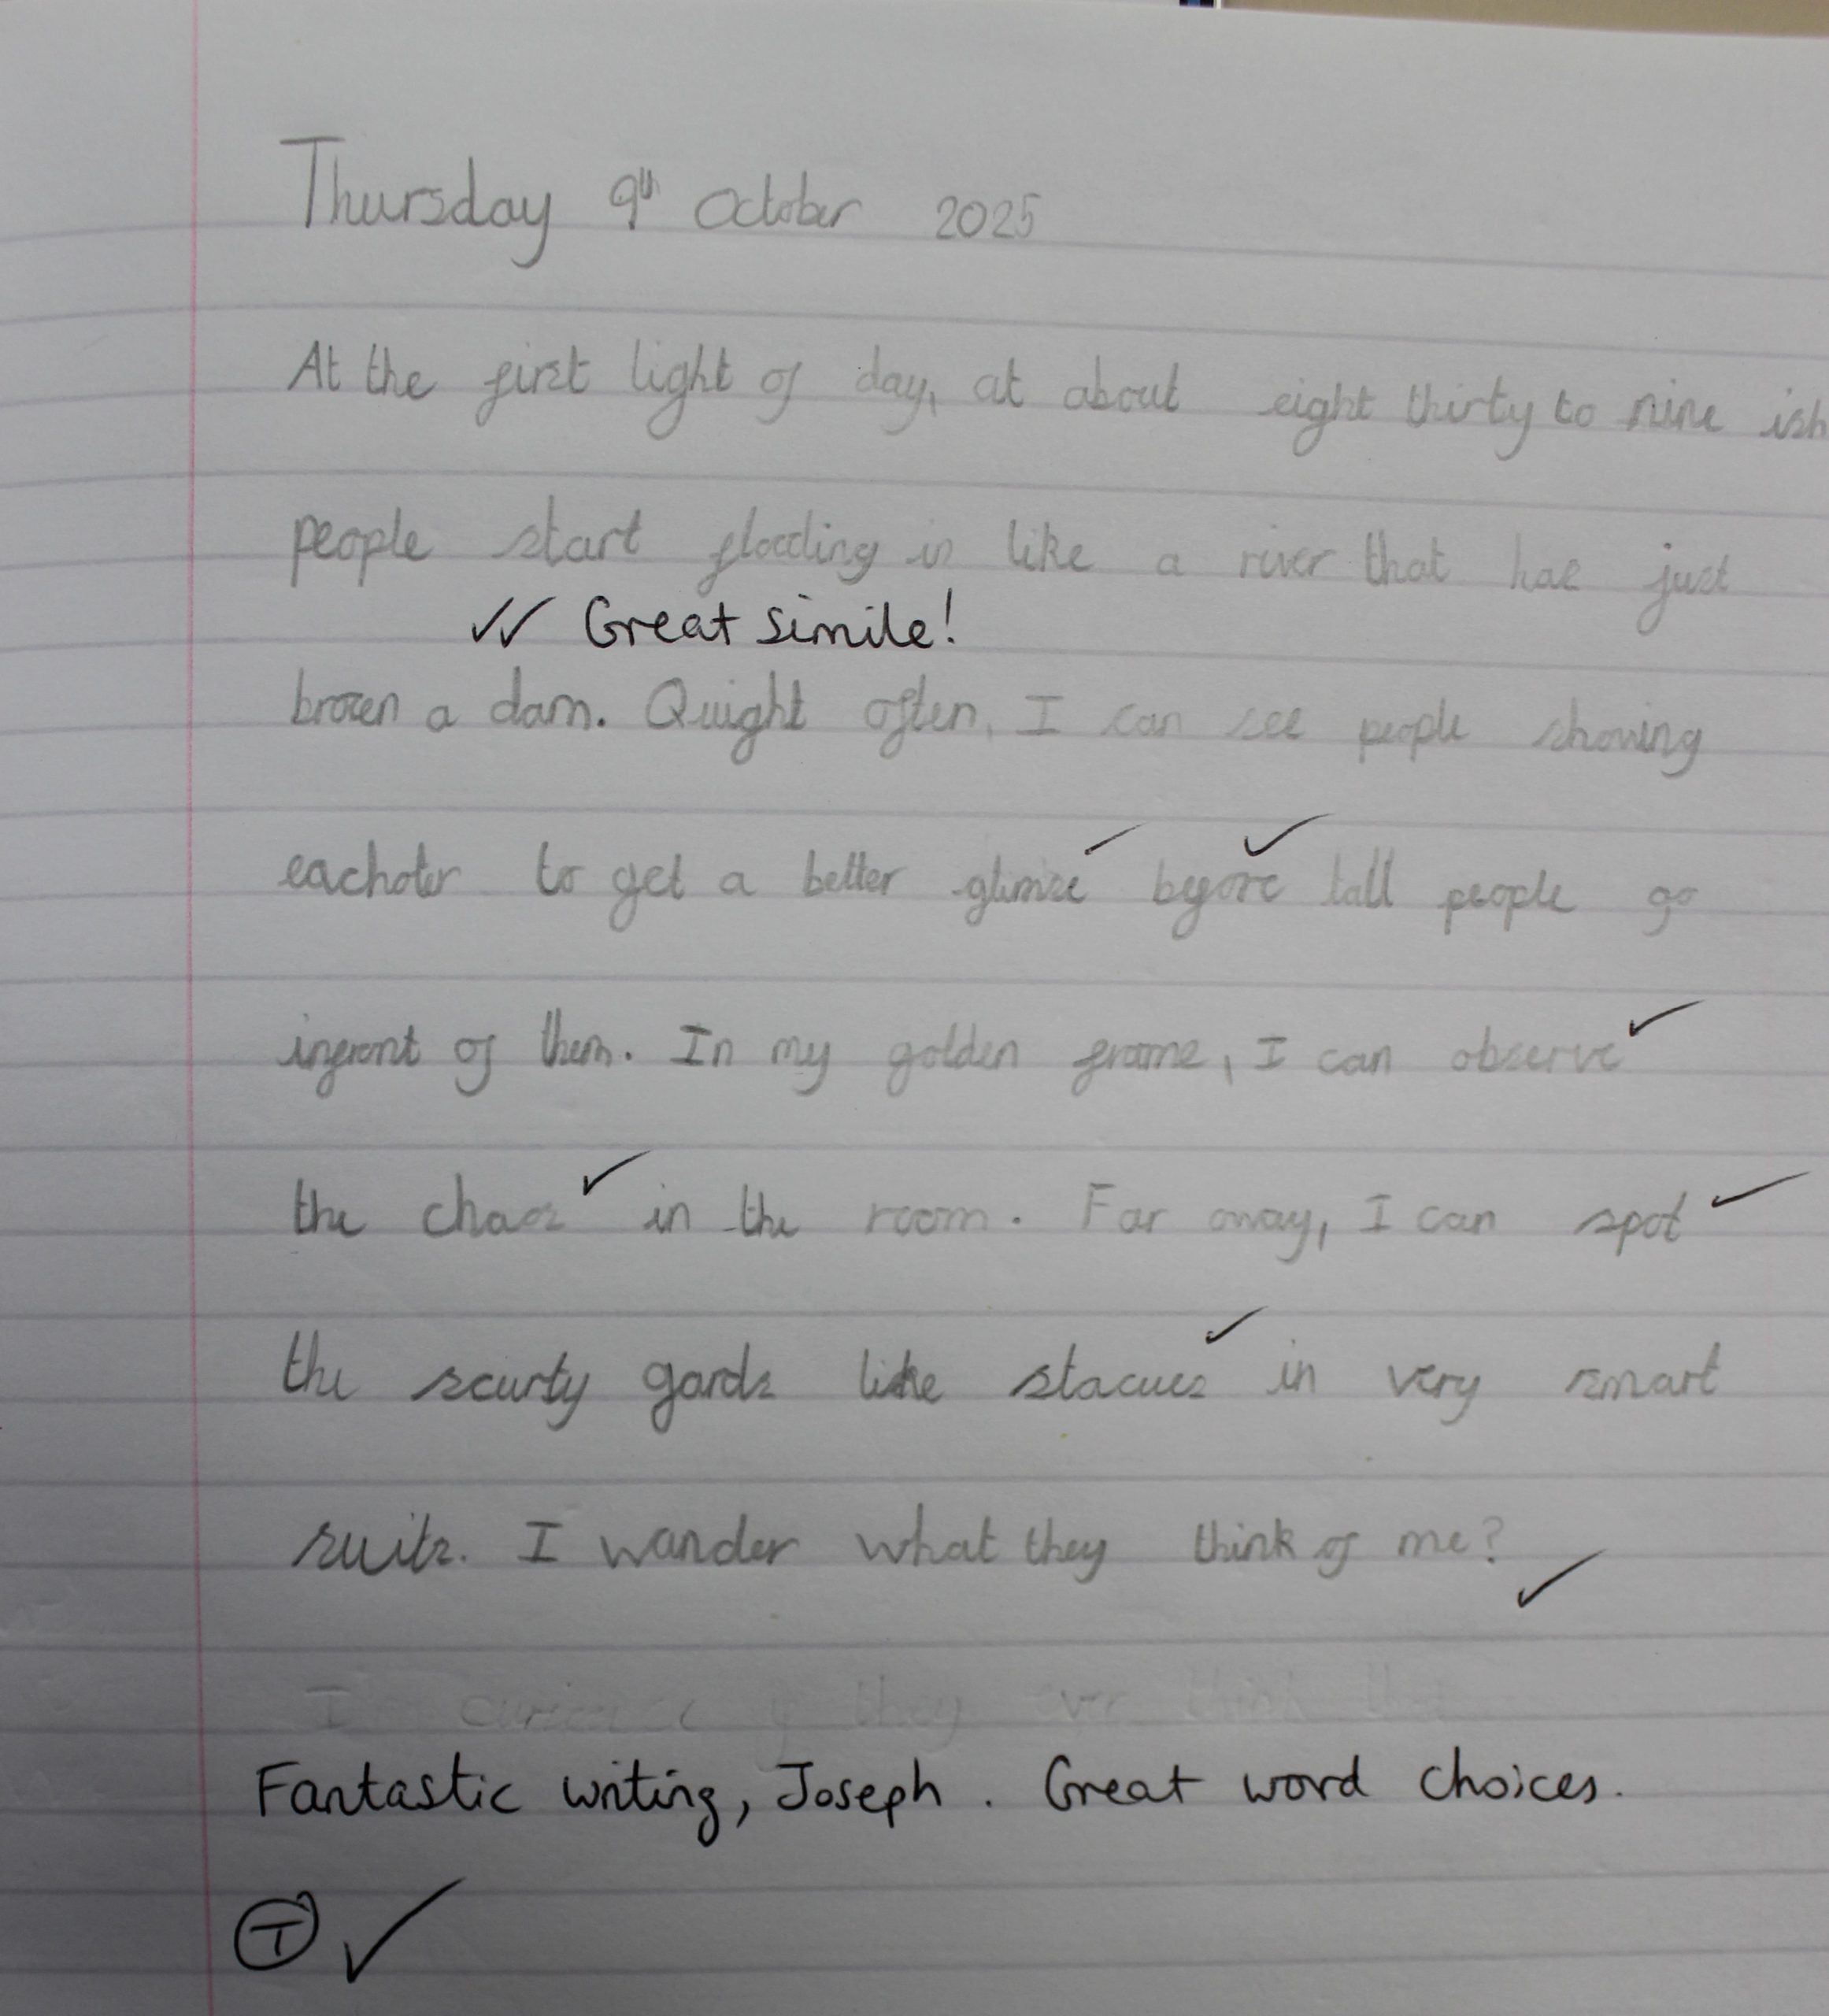 Thursday 9th October 2025
At the first light of day, at about eight thirty to nine ish
people start flooding in like a river that has just
✓✓ Great simile!
brocen a dam. Quight often, I can see people shoving
eachoter to get a better glimse ✓ before ✓ tall people go
infront of them. In my golden frame, I can observe ✓
the chaos ✓ in the room. Far away, I can spot ✓
the scurty gards like stacues ✓ in very smart
suits. I wander what they think of me? ✓
I they ever think that
Fantastic writing, Joseph. Great word choices.
T ✓